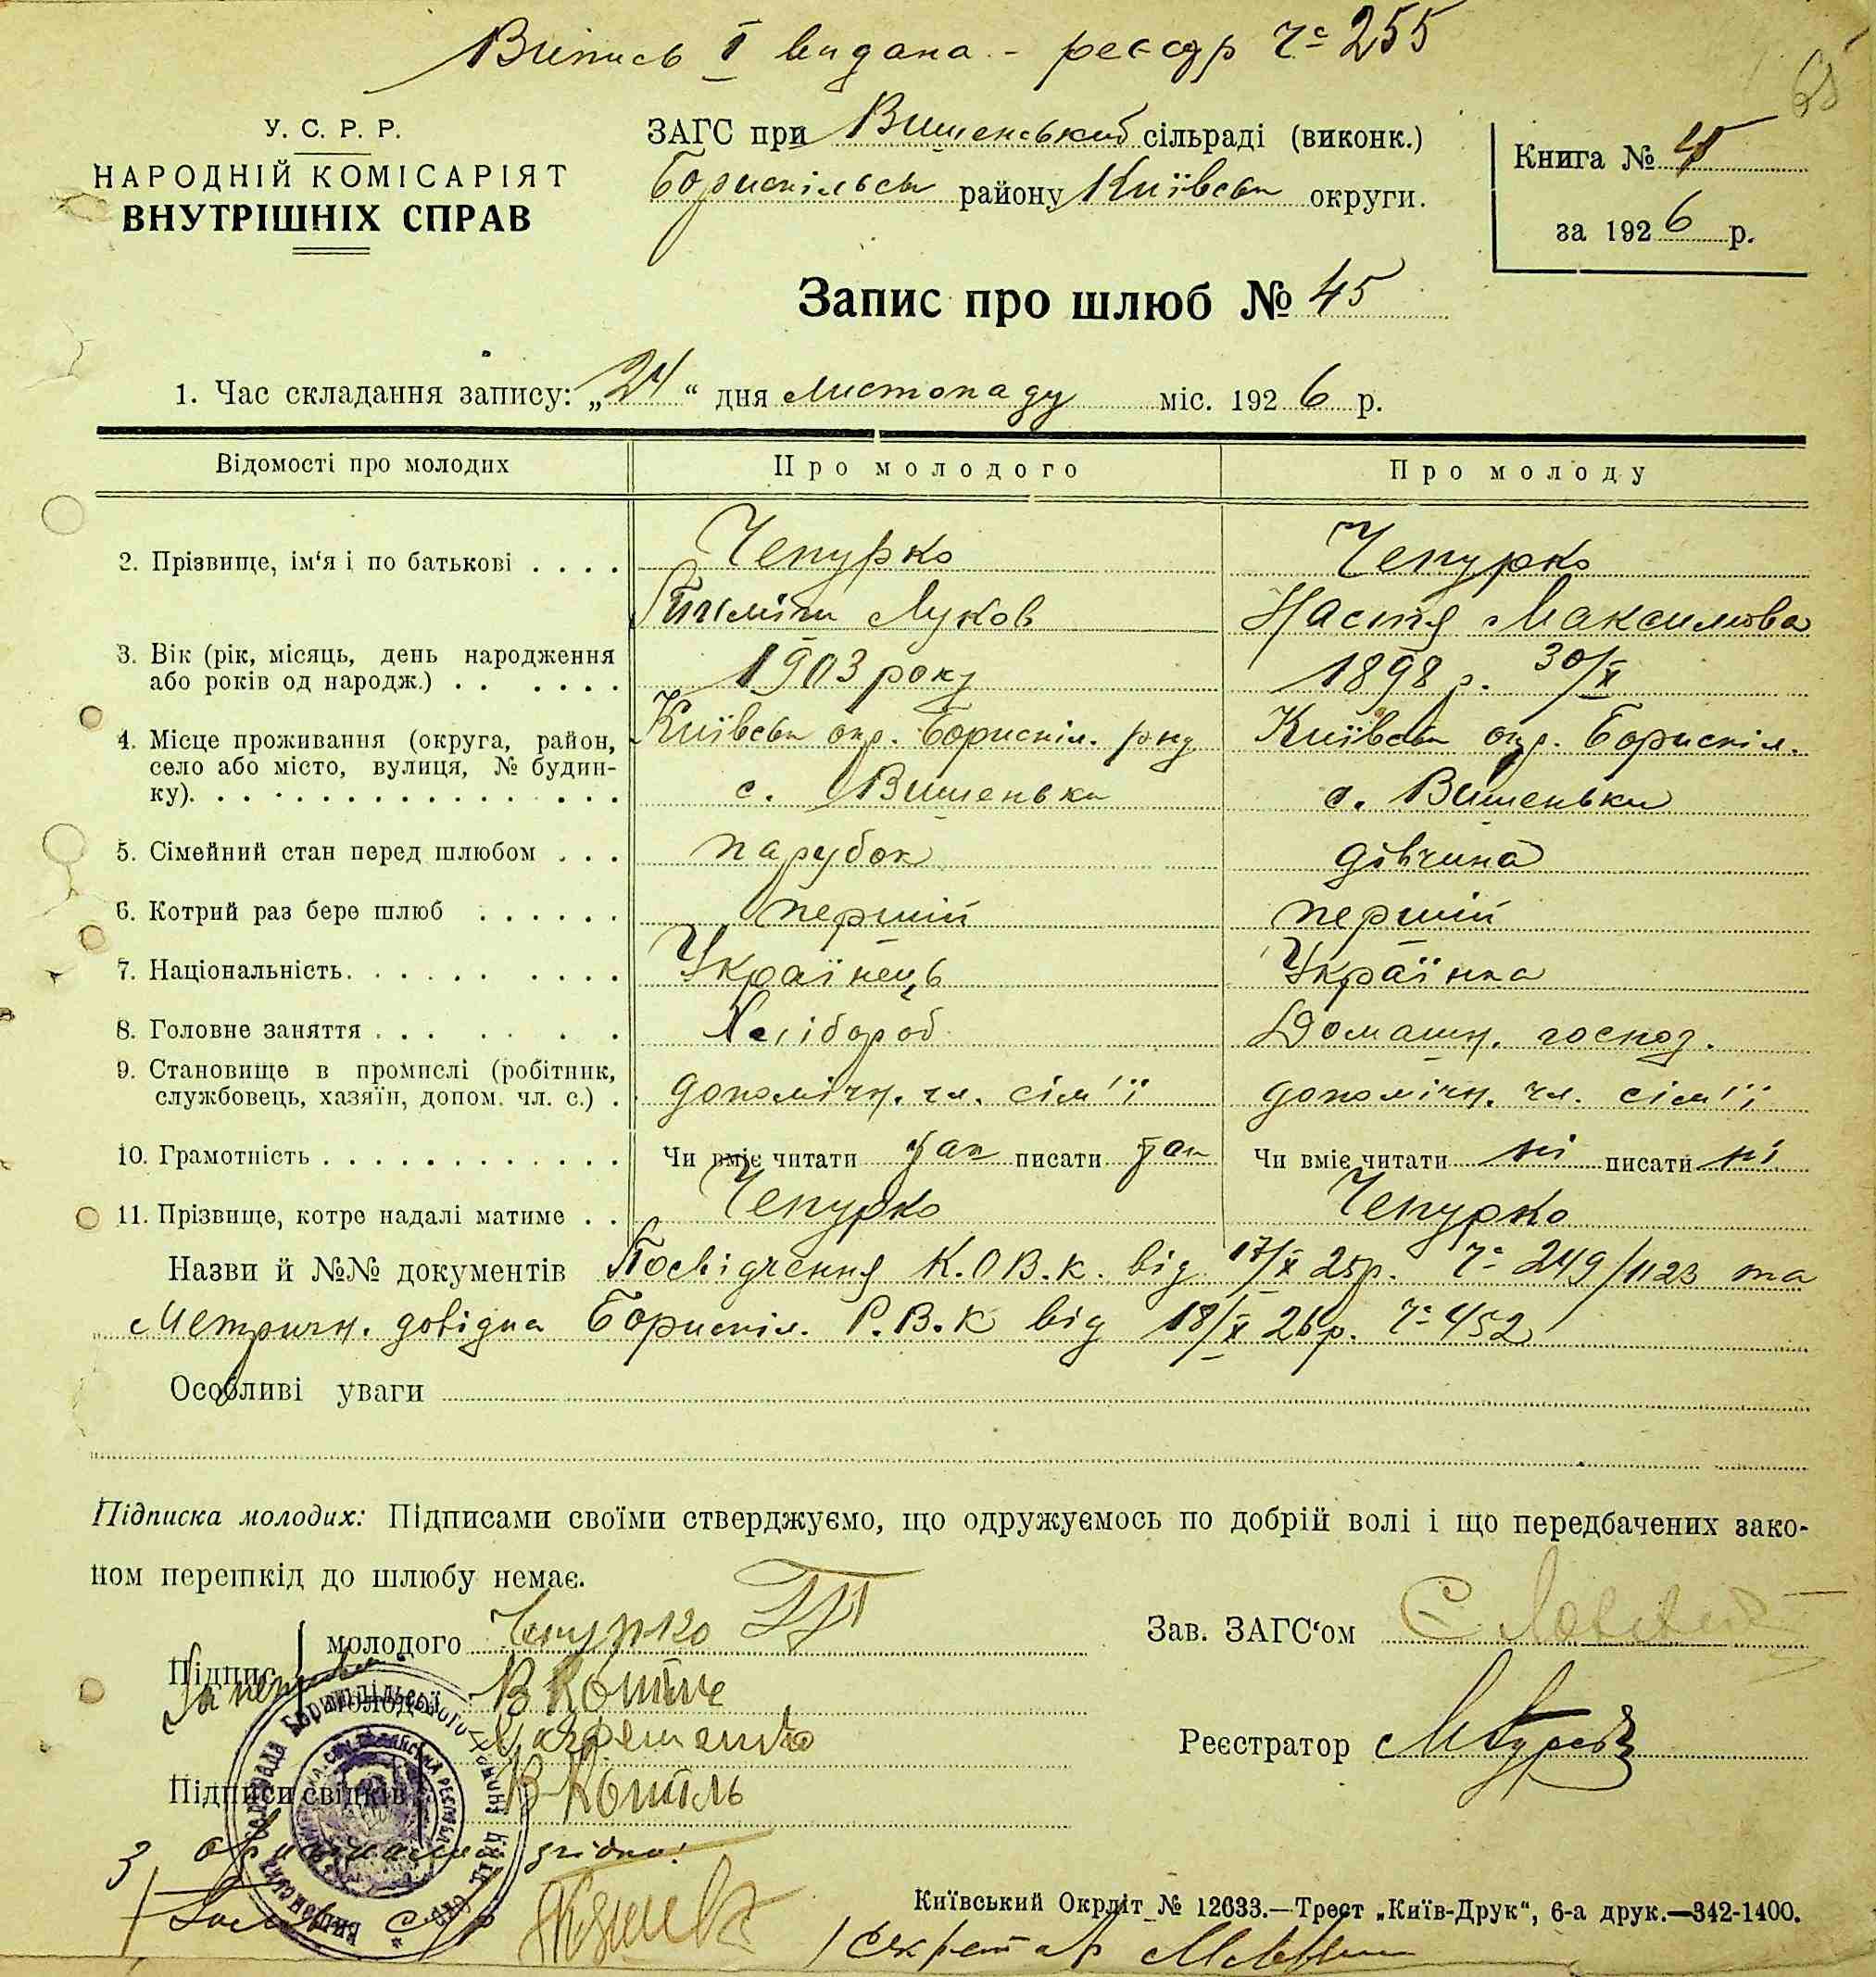 Випись І видана - реєстр Ч= 255
65
У. С. Р. Р.
НАРОДНІЙ КОМІСАРІЯТ
ВНУТРІШНІХ СПРАВ
ЗАГС при Вишенській сільраді (виконк.)
Бориспільськ району Київськ округи.
Книга №
за 1926 р.
Запис про шлюб № 45
1. Час складання запису: „24“ дня листопаду міс. 1926 р.
Відомості про молодих Про молодого Про молоду
2. Прізвище, ім‘я і по батькові . . . . Чепурко Чепурко
Луков Настя Максимова
3. Вік (рік, місяць, день народження
або років од народж.) . . . . . . 1903 року 1898 р. 30/X
4. Місце проживання (округа, район,
село або місто, вулиця, № будин-
ку). . . . . . . . . . . . . . . . .
Київськ окр. Бориспіл. р-ну Київськ окр. Бориспіл.
с. Вишеньки с. Вишеньки
5. Сімейний стан перед шлюбом . . . парубок дівчина
6. Котрий раз бере шлюб . . . . . . перший перший
7. Національність. . . . . . . . . . Українець Українка
8. Головне заняття . . . . . . . . Хлібороб Домашн. господ.
9. Становище в промислі (робітник,
службовець, хазяїн, допом. чл. с.) . допомічн. чл. сім'ї допомічн. чл. сім'ї
10. Грамотність . . . . . . . . . . . . . Чи вміє читати так писати так Чи вміє читати ні писати ні
11. Прізвище, котре надалі матиме . . Чепурко Чепурко
Назви й №№ документів Посвідчення К.О.В.К. від 17/X 25р. Ч= 249/1123 та
Метричн. довідка Бориспіл. Р.В.К від 18/X 26р. Ч= 452
Особливі уваги
Підписка молодих: Підписами своїми стверджуємо, що одружуємось по добрій волі і що передбачених зако-
ном перешкід до шлюбу немає.
Підпис молодого Чепурко
молодої
Підписи свідків
Зав. ЗАГС‘ом
Реєстратор
З оригіналом згідно:
Київський Окрліт № 12633.—Трест „Київ-Друк“, 6-а друк.—342-1400.
Секретар